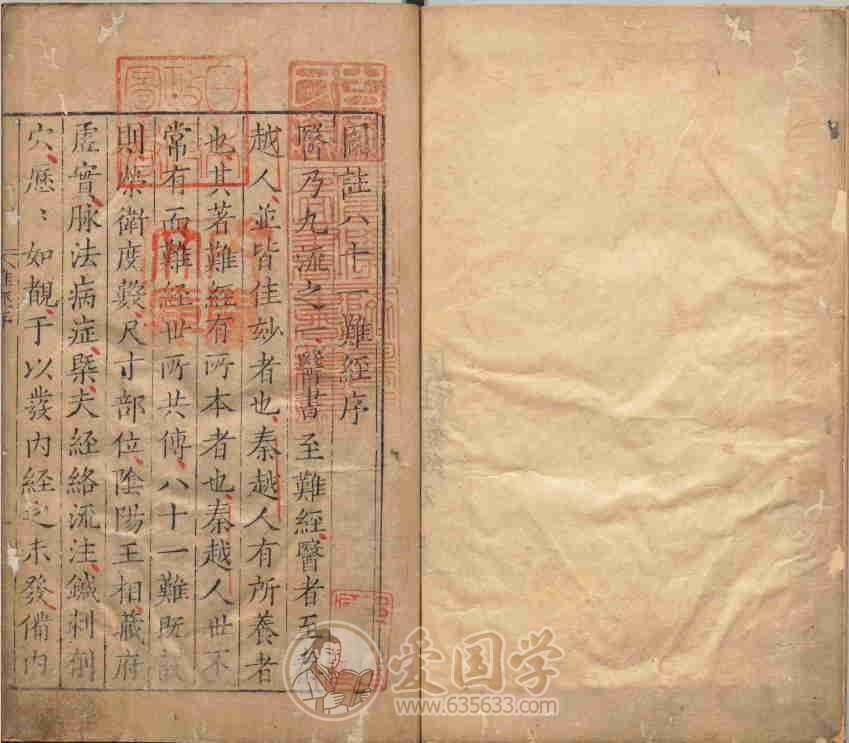 圖註八十一難經序
醫乃九流之一醫書至難經醫者至秦
越人並皆佳妙者也秦越人有所養者
也其著難經有所本者也秦越人世不
常有而難經世所共傳八十一難既
則榮衛度數尺寸部位陰陽王相藏府
虛實脉法病症槩夫經絡流注鍼刺俞
穴歷〻如覩于以發内經之未發備内
爱国学
www.635633.com